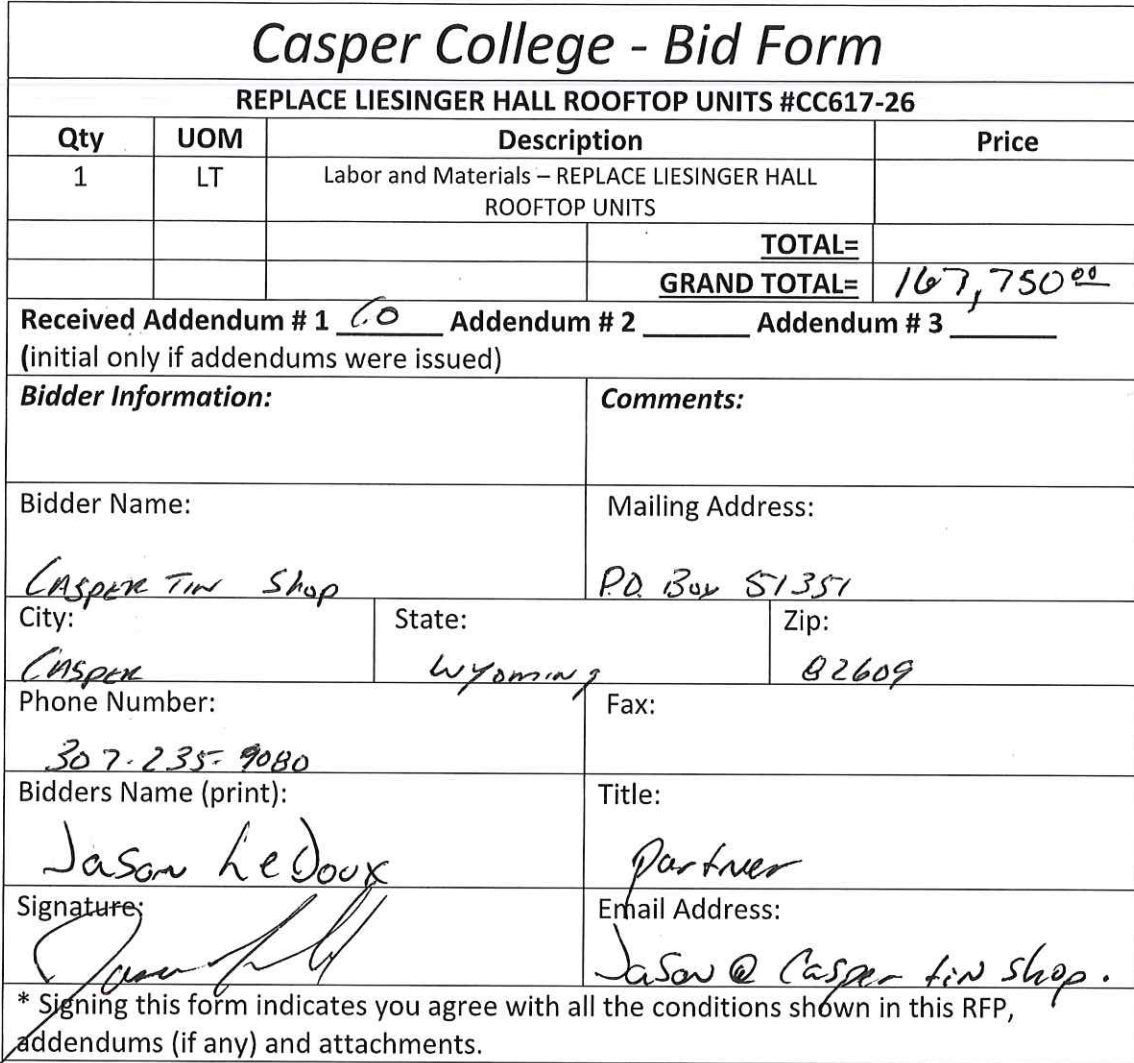 Casper College - Bid Form
REPLACE LIESINGER HALL ROOFTOP UNITS #CC617-26
Qty UOM Description Price
1 LT Labor and Materials – REPLACE LIESINGER HALL
ROOFTOP UNITS
TOTAL=
GRAND TOTAL= 167,750 00
Received Addendum # 1 ______ Addendum # 2 _______ Addendum # 3 _______
(initial only if addendums were issued)
Bidder Information: Comments:
Bidder Name: Mailing Address:
Casper Tin Shop P.O. Box 51351
City: State: Zip:
Casper Wyoming 82609
Phone Number: Fax:
307-235-9080
Bidders Name (print): Title:
Jason LeDoux Partner
Signature: Email Address:
Jason @ Casper tin shop.
* Signing this form indicates you agree with all the conditions shown in this RFP,
addendums (if any) and attachments.